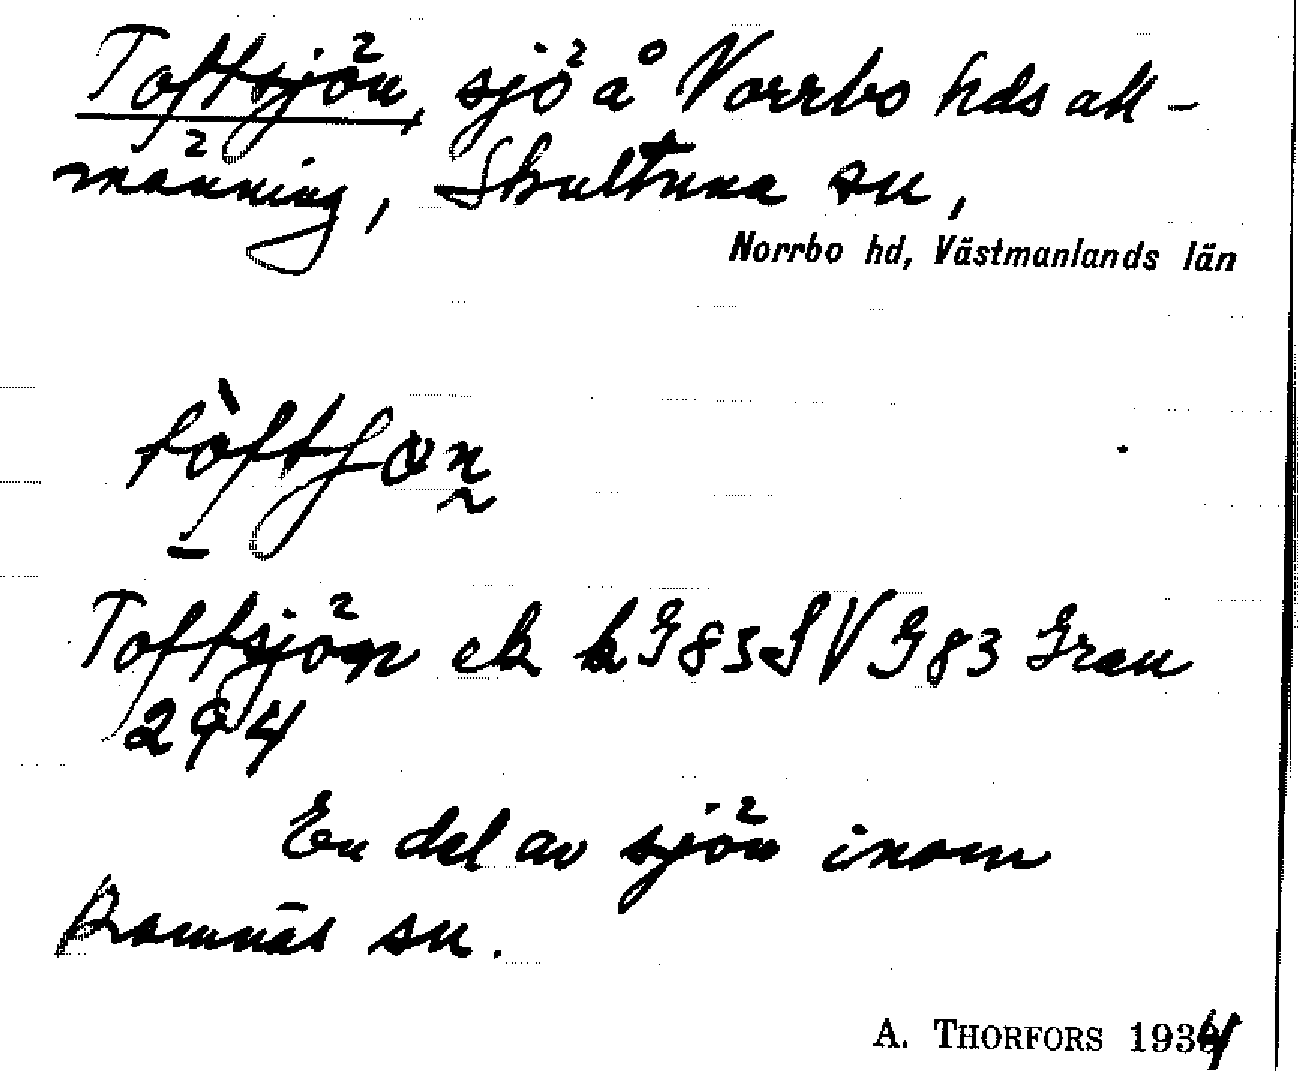 Toftsjön, sjö å Norrbo hds all-
männing, Skultuna sn,
Norrbo hd, Västmanlands län
tòftʃon
Toftsjön ek k G83SV G83 Gran
294
En del av sjön inom
Ramnäs sn.
A. THORFORS 1934